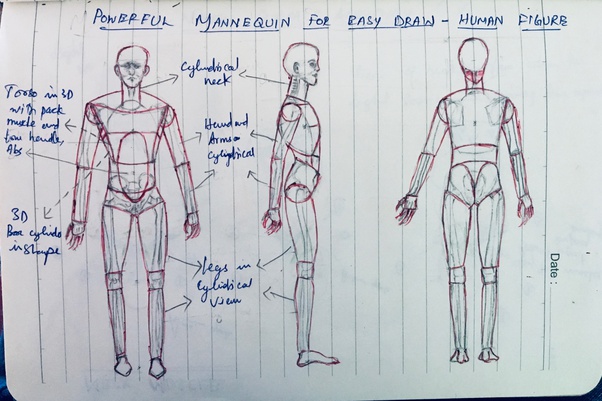 POWERFUL MANNEQUIN FOR EASY DRAW - HUMAN FIGURE
Cylindrical
neck
Torso in 3D
with pack
muscle and
Abs
Hand and
Arms
cylindrical
3D
Box
in shape
Legs in
Cylindrical
View
Date :